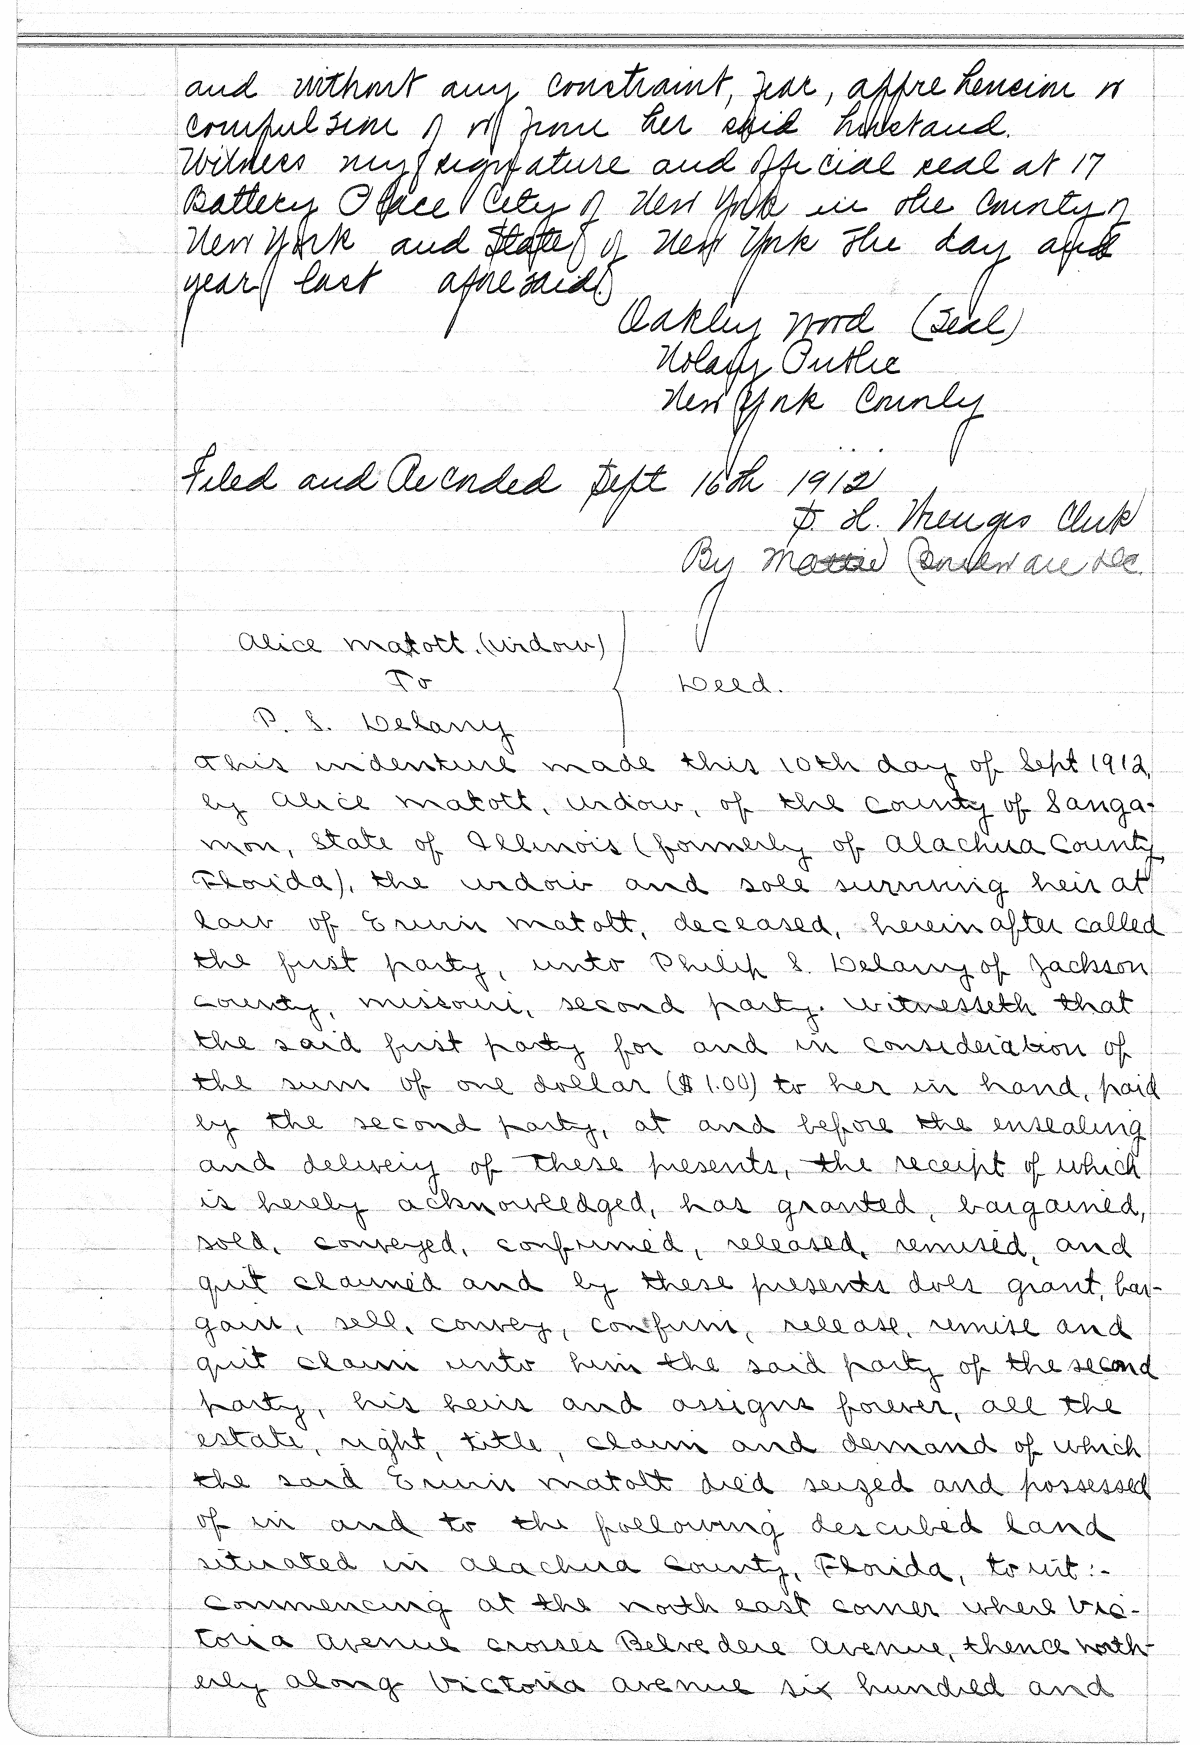 and without any constraint, fear, apprehension or
compulsion of or from her said husband.
Witness my signature and official seal at 17
Battery Place City of New York in the County of
New York and State of New York the day and
year last aforesaid
Oakley Wood (Seal)
Notary Public
New York County
Filed and Recorded Sept 16th 1912
S. H. Wienges Clerk
By Mattie D.C.
Alice Matott. (widow)
To
Deed.
P. S. Delany
This indenture made this 10th day of Sept 1912,
by Alice Matott, widow, of the County of Sanga-
mon, State of Illinois (formerly of Alachua County
Florida), the widow and sole surviving heir at
law of Erwin Matott, deceased, herein after called
the first party, unto Philip S. Delany of Jackson
County, Missouri, second party. Witnesseth that
the said first party for and in consideration of
the sum of one dollar ($1.00) to her in hand, paid
by the second party, at and before the ensealing
and delivery of these presents, the receipt of which
is hereby acknowledged, has granted, bargained,
sold, conveyed, confirmed, released, remised, and
quit claimed and by these presents does grant, bar-
gain, sell, convey, confirm, release, remise and
quit claim unto him the said party of the second
party, his heirs and assigns forever, all the
estate, right, title, claim and demand of which
the said Erwin Matott died seized and possessed
of in and to the following described land
situated in Alachua County, Florida, to wit:-
Commencing at the north east corner where Vic-
toria Avenue crosses Belvedere Avenue, thence north-
erly along Victoria avenue six hundred and